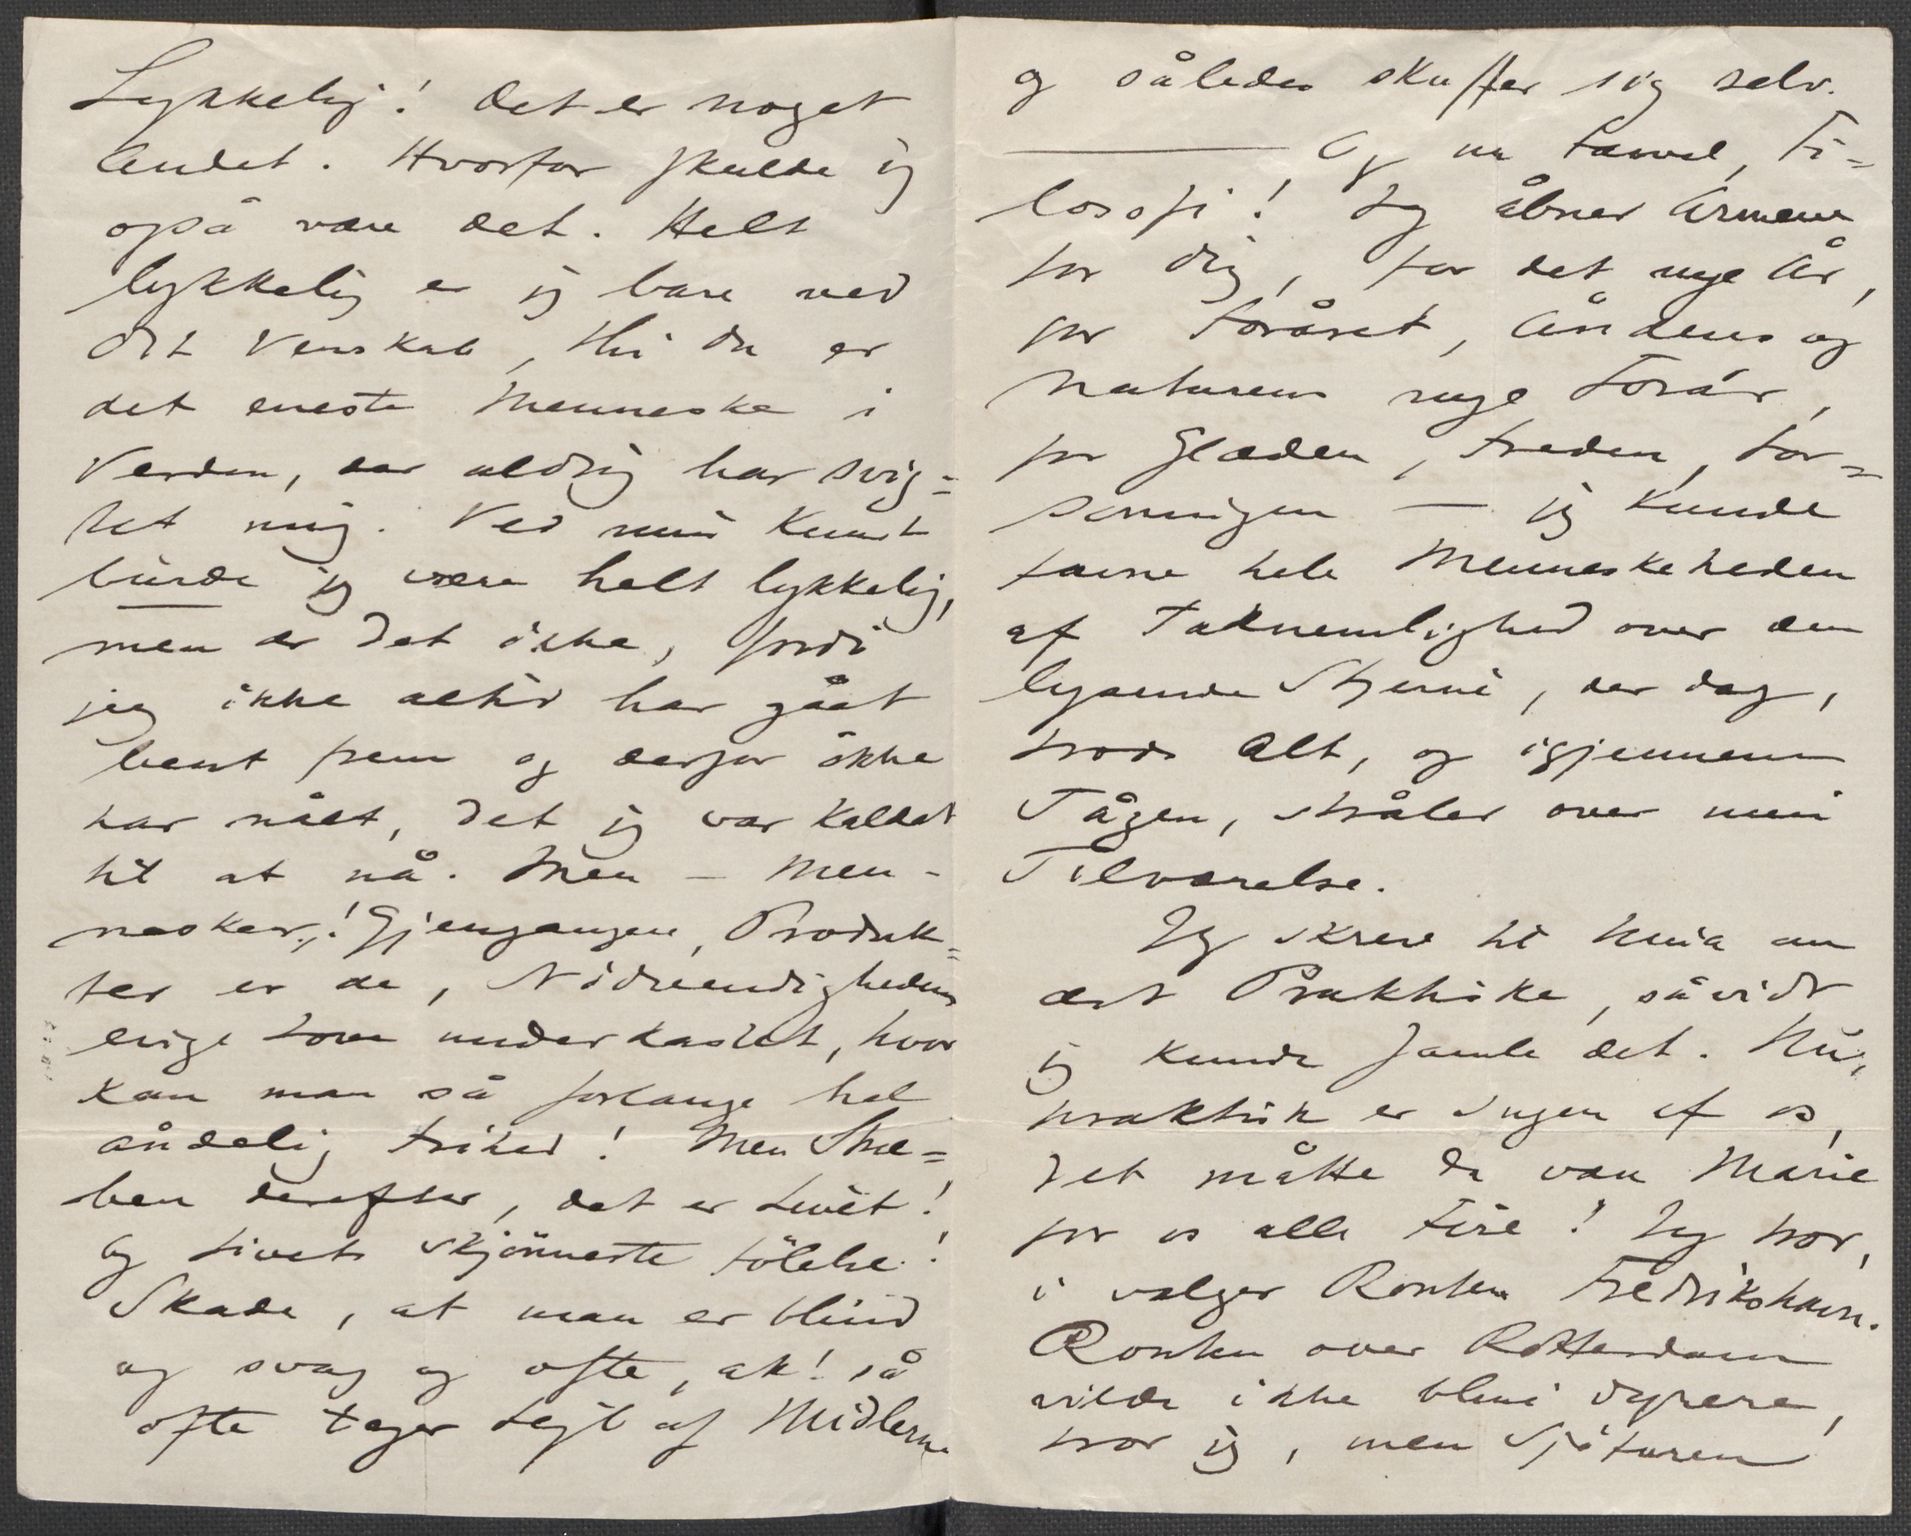 Lykkelig! Det er noget
Andet. Hvorfor skulde jeg
også være det. Helt
lykkelig er jeg bare ved
Dit Venskab, thi Du er
det eneste Menneske i
Verden, der aldrig har svig=
tet mig. Ved min Kunst
burde jeg være helt lykkelig,
men er det ikke, fordi
jeg ikke altid har gået
bent frem og derfor ikke
har nået, det jeg var kaldet
til at nå. Men – Men-
nesker,! Gjengangere, Produk=
ter er de, Nödvendighedens
evige Love underkastet, hvor
kan man så forlange hel
åndelig Frihed! Men Stræ=
ben derefter, det er Livet!
Og Livets skjönneste Fölelse!
Skade, at man er blind
og svag og ofte, ak! så
ofte tager Fejl af Midlerne
og således skuffer sig selv.
— Og nu Farvel, Fi=
losofi! Jeg åbner Armene
for Dig, for det nye År,
for Foråret, Åndens og
Naturens nye Forår,
for Glæden, Freden, For=
soningen — jeg kunde
favne hele Menneskeheden
af Taknemlighed over den
lysende Stjerne, der dog,
trods Alt, og igjennem
Tågen, stråler over min
Tilværelse.
Jeg skrev til Nina om
det Praktiske, såvidt
jeg kunde samle det. Nu,
praktisk er Ingen af os,
det måtte da være Marie
for os alle Fire! Jeg tror,
i vælger Routen Fredrikshavn.
Routen over Rotterdam
vilde ikke blive dyrere,
tror jeg, men Sjöturen